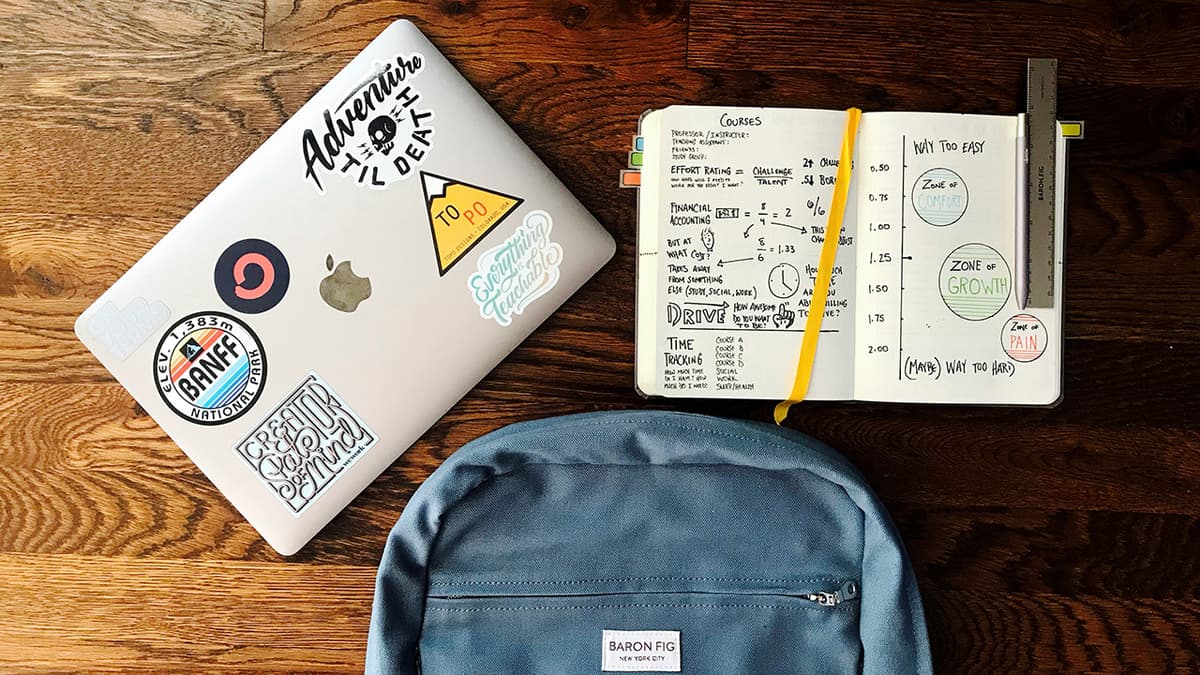 Adventure
TIL DEATH
TO PO
TOPO DESIGNS · COLORADO, USA
Everything
is
Teachable
ELEV. 1,383m
BANFF
NATIONAL PARK
CREATOR
Pale
of Mind
wework
COURSES
PROFESSOR / INSTRUCTOR:
TEACHING ASSISTANT:
FRIENDS:
STUDY GROUP:
EFFORT RATING = CHALLENGE
TALENT
HOW HARD WILL I NEED TO
WORK FOR THE RESULT I WANT?
2↑ CHALLENG
.5↓ BOR
FINANCIAL
ACCOUNTING
= 8/4 = 2
6/6
8/6 = 1.33
BUT AT
WHAT COST?
TAKES AWAY
FROM SOMETHING
ELSE (STUDY, SOCIAL, WORK)
THIS
CHAN
HOW MUCH
TIME
ARE
YOU WILLING
TO GIVE?
DRIVE
HOW AWESOME
DO YOU WANT
TO BE?
TIME
TRACKING
HOW MUCH TIME
DO I HAVE? HOW
MUCH DO I NEED?
COURSE A
COURSE B
COURSE C
COURSE D
SOCIAL
WORK
SLEEP/HEALTH
WAY TOO EASY
0.50
0.75
1.00
1.25
1.50
1.75
2.00
ZONE OF
COMFORT
ZONE OF
GROWTH
ZONE OF
PAIN
(MAYBE) WAY TOO HARD
BARON FIG
BARON FIG
NEW YORK CITY